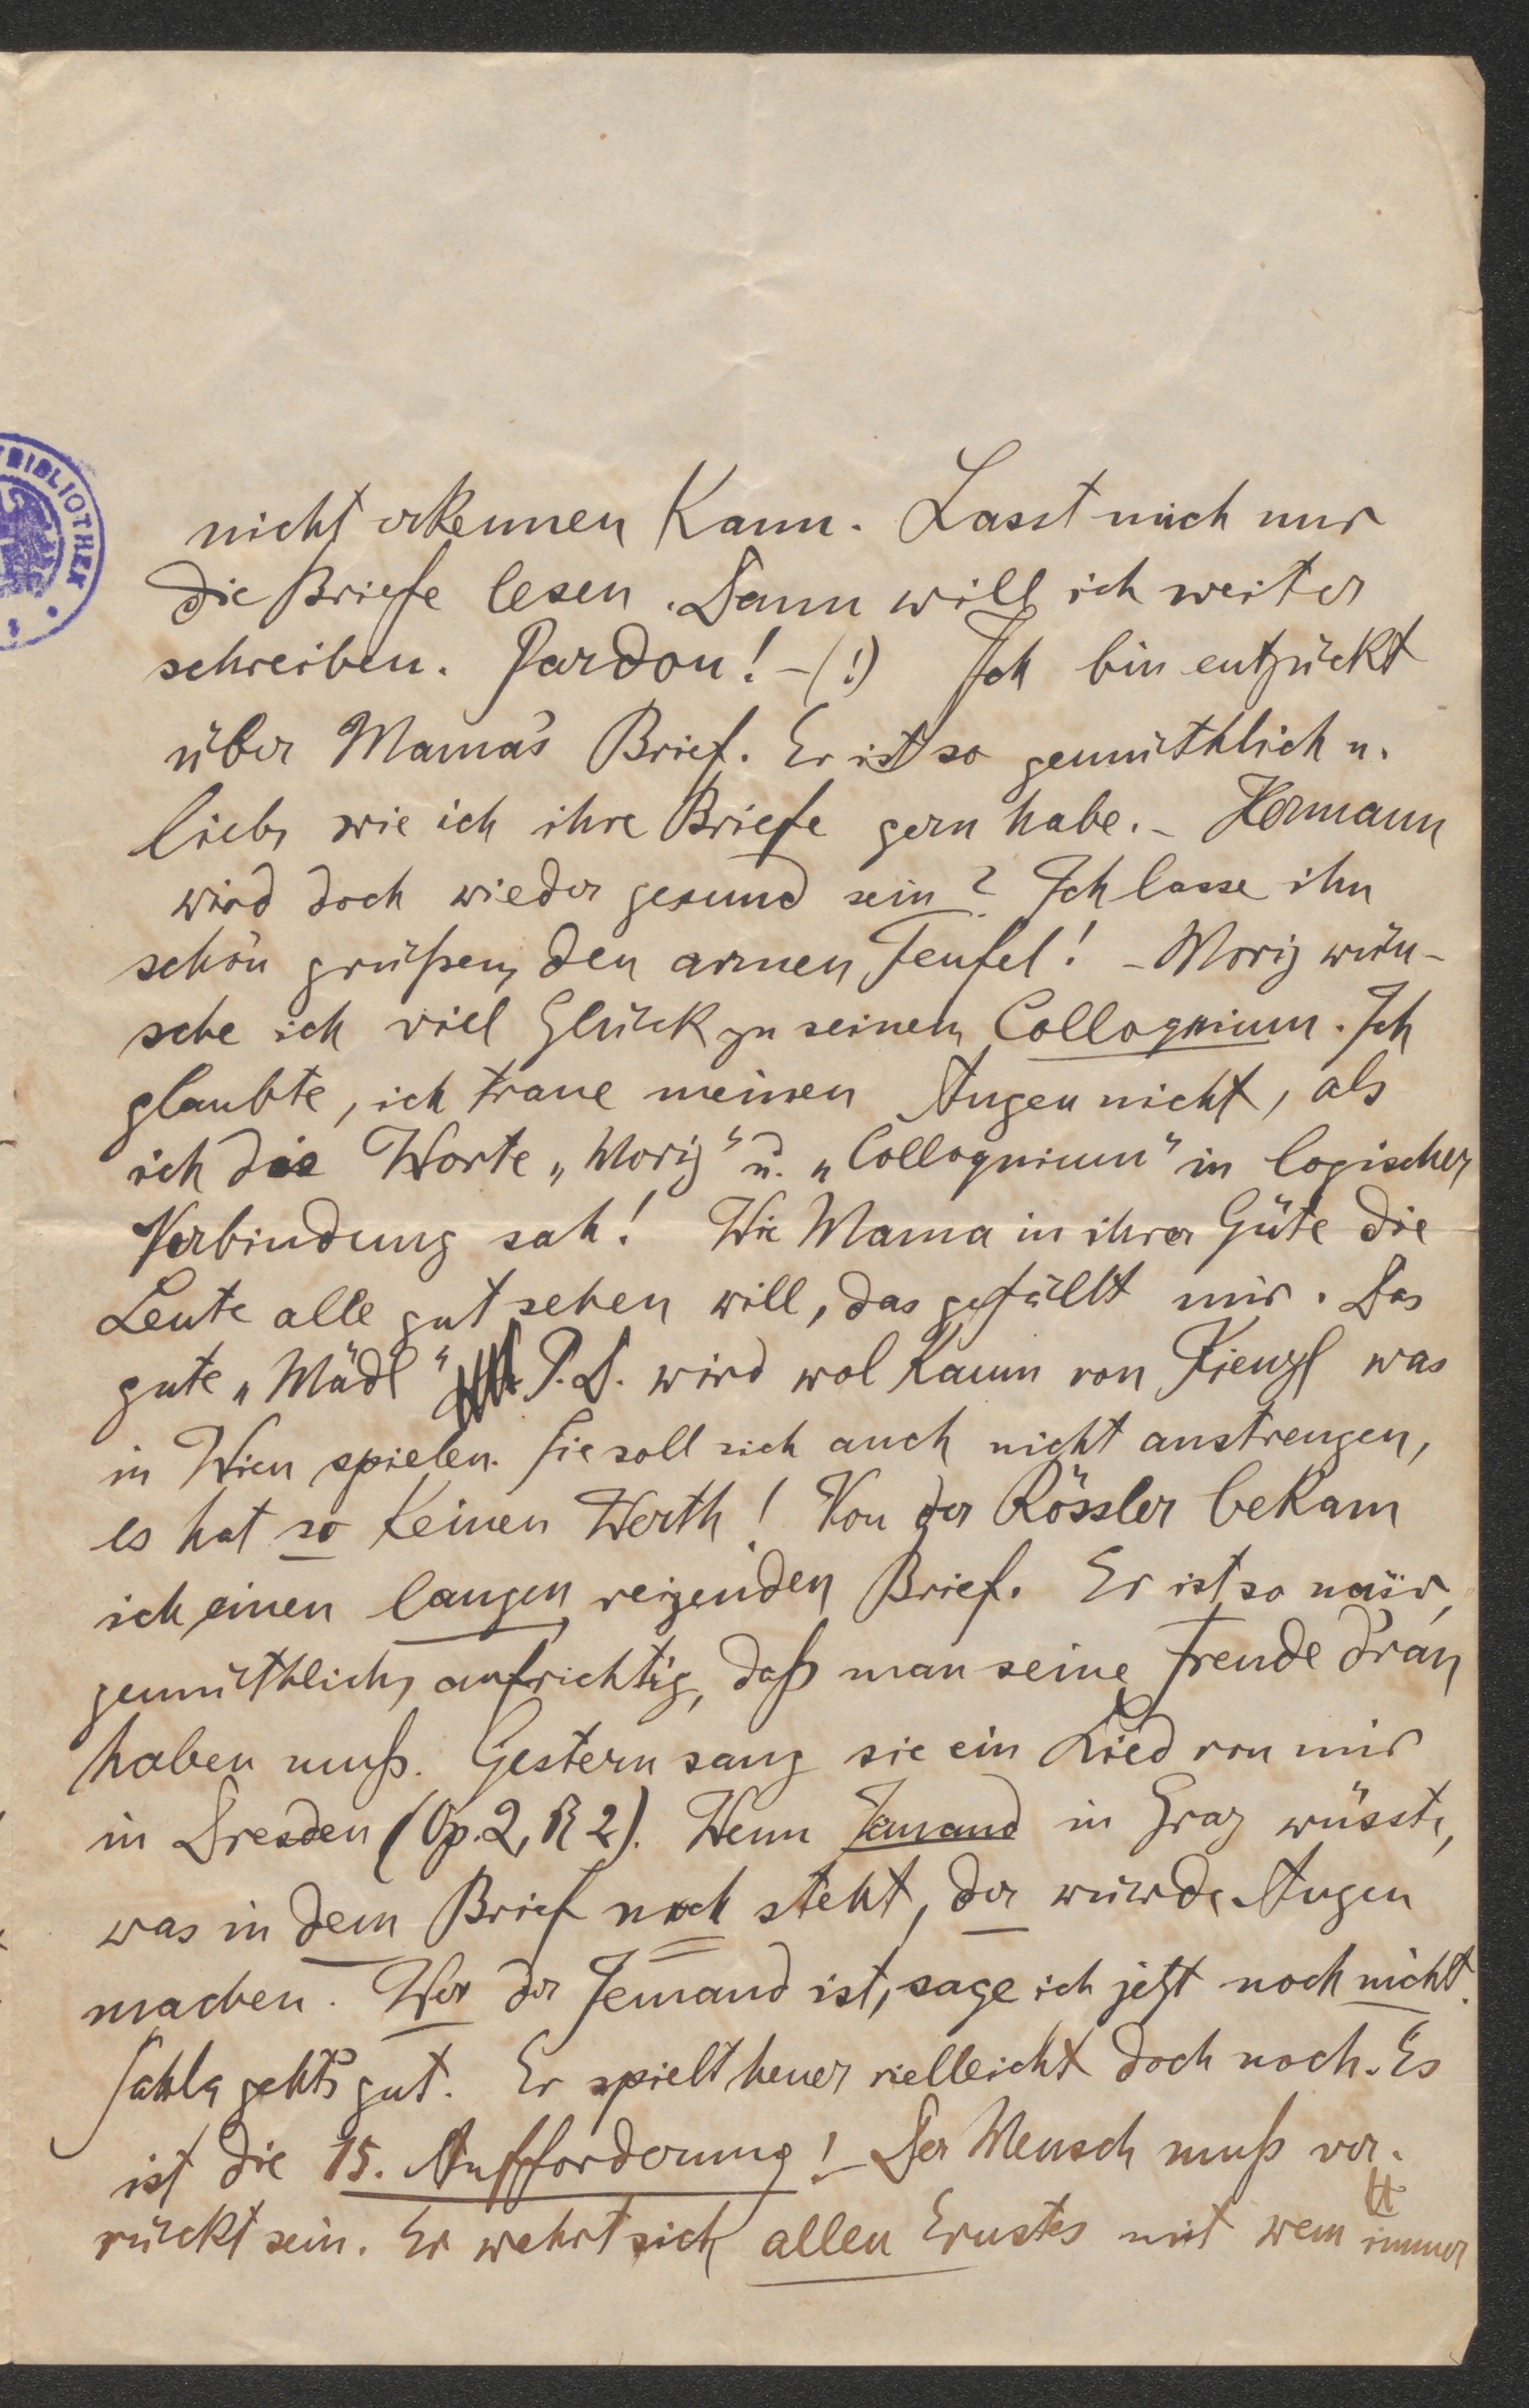 BIBLIOTHEK
nicht erkennen kann. Lasst mich nur
die Briefe lesen. Dann will ich weiter
schreiben. Pardon! – (!) Ich bin entzückt
über Mama's Brief. Er ist so gemüthlich u.
lieb, wie ich ihre Briefe gern habe. – Hermann
wird doch wieder gesund sein? Ich lasse ihn
schön grüßen, den armen Teufel! – Moriz wün-
sche ich viel Glück zu seinem Colloquium. Ich
glaubte, ich traue meinen Augen nicht, als
ich die Worte „Moriz" u. „Colloquium" in logischer
Verbindung sah! Wie Mama in ihrer Güte die
Leute alle gut sehen will, das gefällt mir. Das
gute „Mädl" P.S. wird wol kaum von Kienzl was
in Wien spielen. Sie soll sich auch nicht anstrengen,
es hat so keinen Werth! Von der Rössler bekam
ich einen langen, reizenden Brief. Er ist so naiv,
gemüthlich, aufrichtig, daß man seine Freude d'ran
haben muß. Gestern sang sie ein Lied von mir
in Dresden (Op. 2, № 2). Wenn Jemand in Graz wüsste,
was in dem Brief noch steht, der würde Augen
machen. Wer der Jemand ist, sage ich jetzt noch nicht.
Sahla geht's gut. Er spielt heuer vielleicht doch noch. Es
ist die 15. Aufforderung! – Der Mensch muß ver-
rückt sein. Er wehrt sich allen Ernstes mit wem immer